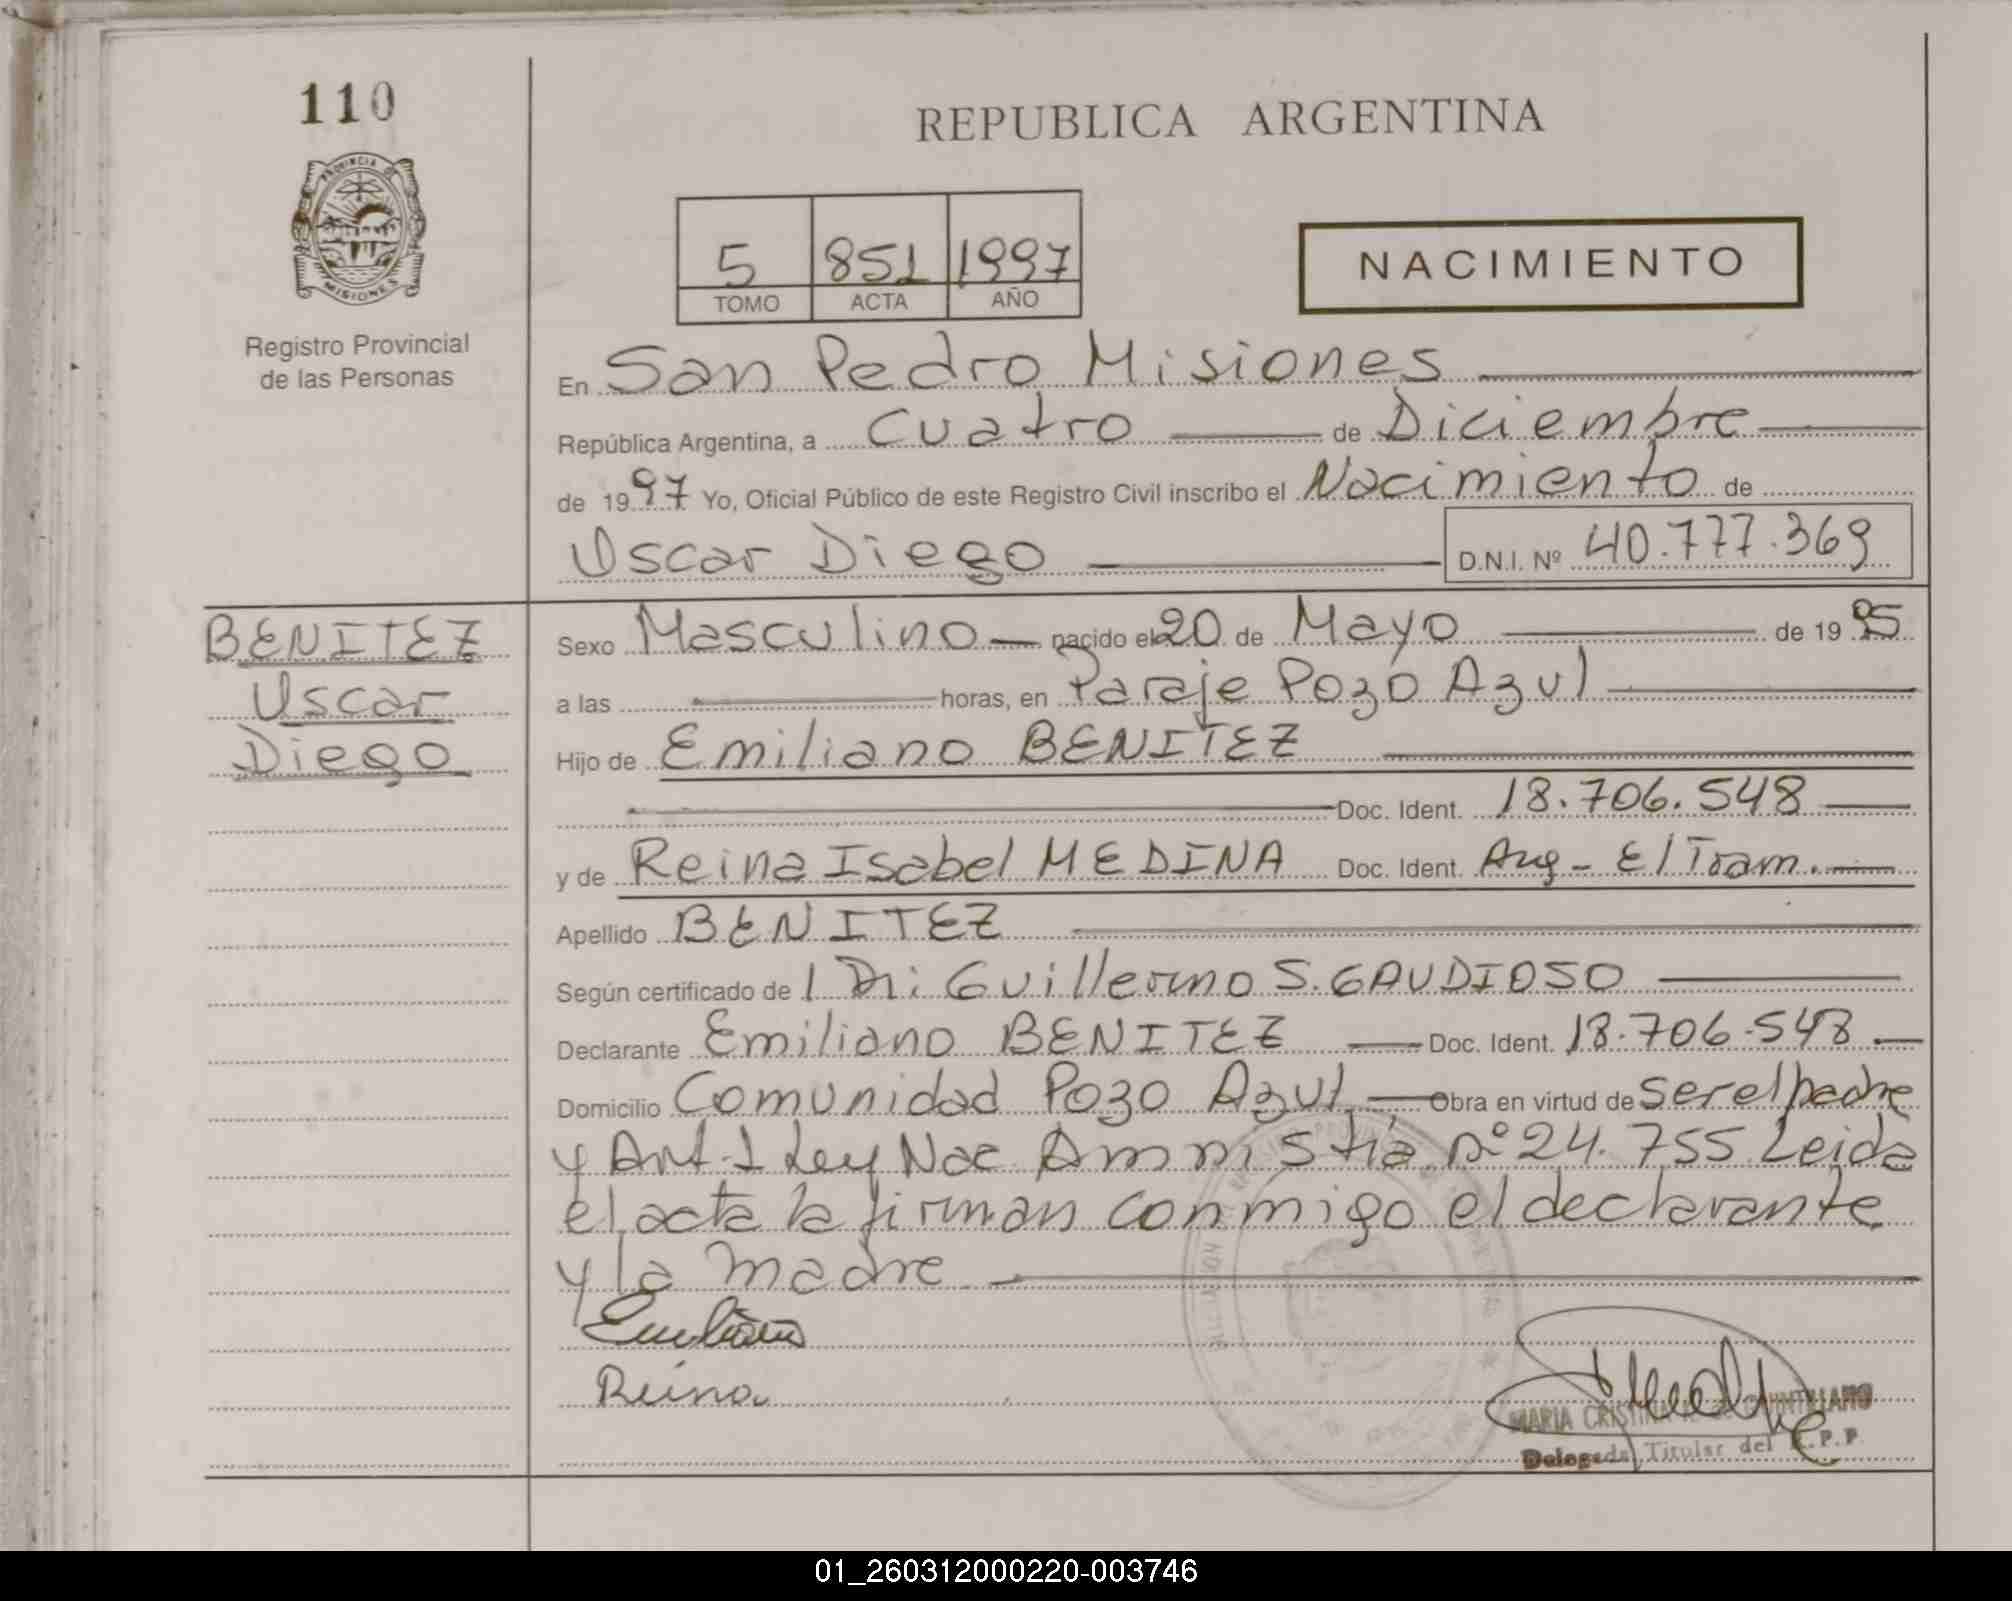 110
REPUBLICA ARGENTINA
PROVINCIA DE
MISIONES
Registro Provincial
de las Personas
5 851 1997
TOMO ACTA AÑO
NACIMIENTO
En San Pedro Misiones
República Argentina, a Cuatro de Diciembre
de 1997 Yo, Oficial Público de este Registro Civil inscribo el Nacimiento de
Uscar Diego D.N.I. Nº 40.777.369
BENITEZ
Uscar
Diego
Sexo Masculino nacido el 20 de Mayo de 1995
a las horas, en Paraje Pozo Azul
Hijo de Emiliano BENITEZ
Doc. Ident. 18.706.548
y de Reina Isabel MEDINA Doc. Ident. Arg - El Tram.
Apellido BENITEZ
Según certificado de Dr: Guillermo S. GAUDIOSO
Declarante Emiliano BENITEZ Doc. Ident. 18.706.548
Domicilio Comunidad Pozo Azul Obra en virtud de ser el padre
y Art. 1 Ley Nac Ammistia nº 24.755 Leida
el acta la firman conmigo el declarante
y la madre
Emiliano
Reina
MARIA CRISTINA de QUINTILLANO
Delegada Titular del R.P.P.
01_260312000220-003746